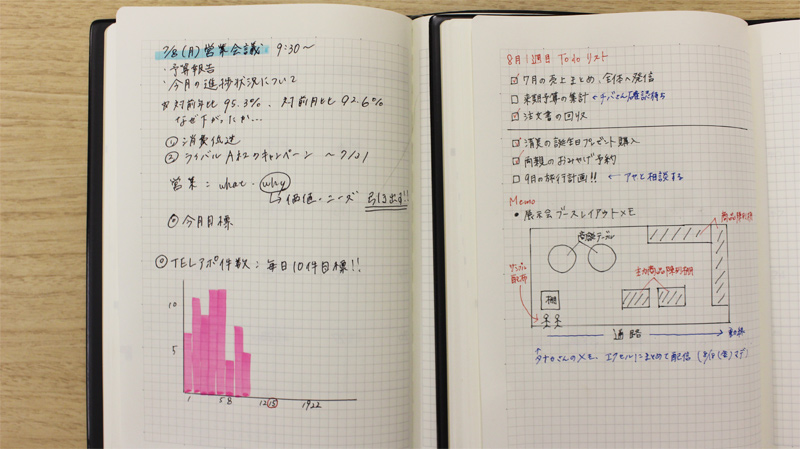 7/8(月)営業会議 9:30〜
・予算報告
・今月の進捗状況について
対前年比 95.3%、対前月比 92.6%
なぜ下がったか…
① 消費低迷
② ライバルA社のキャンペーン 〜7/21
営業:what・why
↳価値・ニーズ 引き出す!!
◎今月目標
◎TELアポ件数:毎日10件目標!!
10
5
1 5 8 12 15 19 22
8月1週目 Todoリスト
☑ 7月の売上まとめ、全体へ発信
□ 来期予算の集計 ←チバさん確認待ち
☑ 注文書の回収
☑ 清美の誕生日プレゼント購入
☑ 両親のおみやげ予約
□ 9月の旅行計画!! ← アヤと相談する
Memo
・展示会ブースレイアウトメモ
商品陳列棚
商談テーブル
サンプル配布
主力商品陳列棚
棚
通路 → 動線
↑タナカさんのメモ、エクセルにまとめて配信